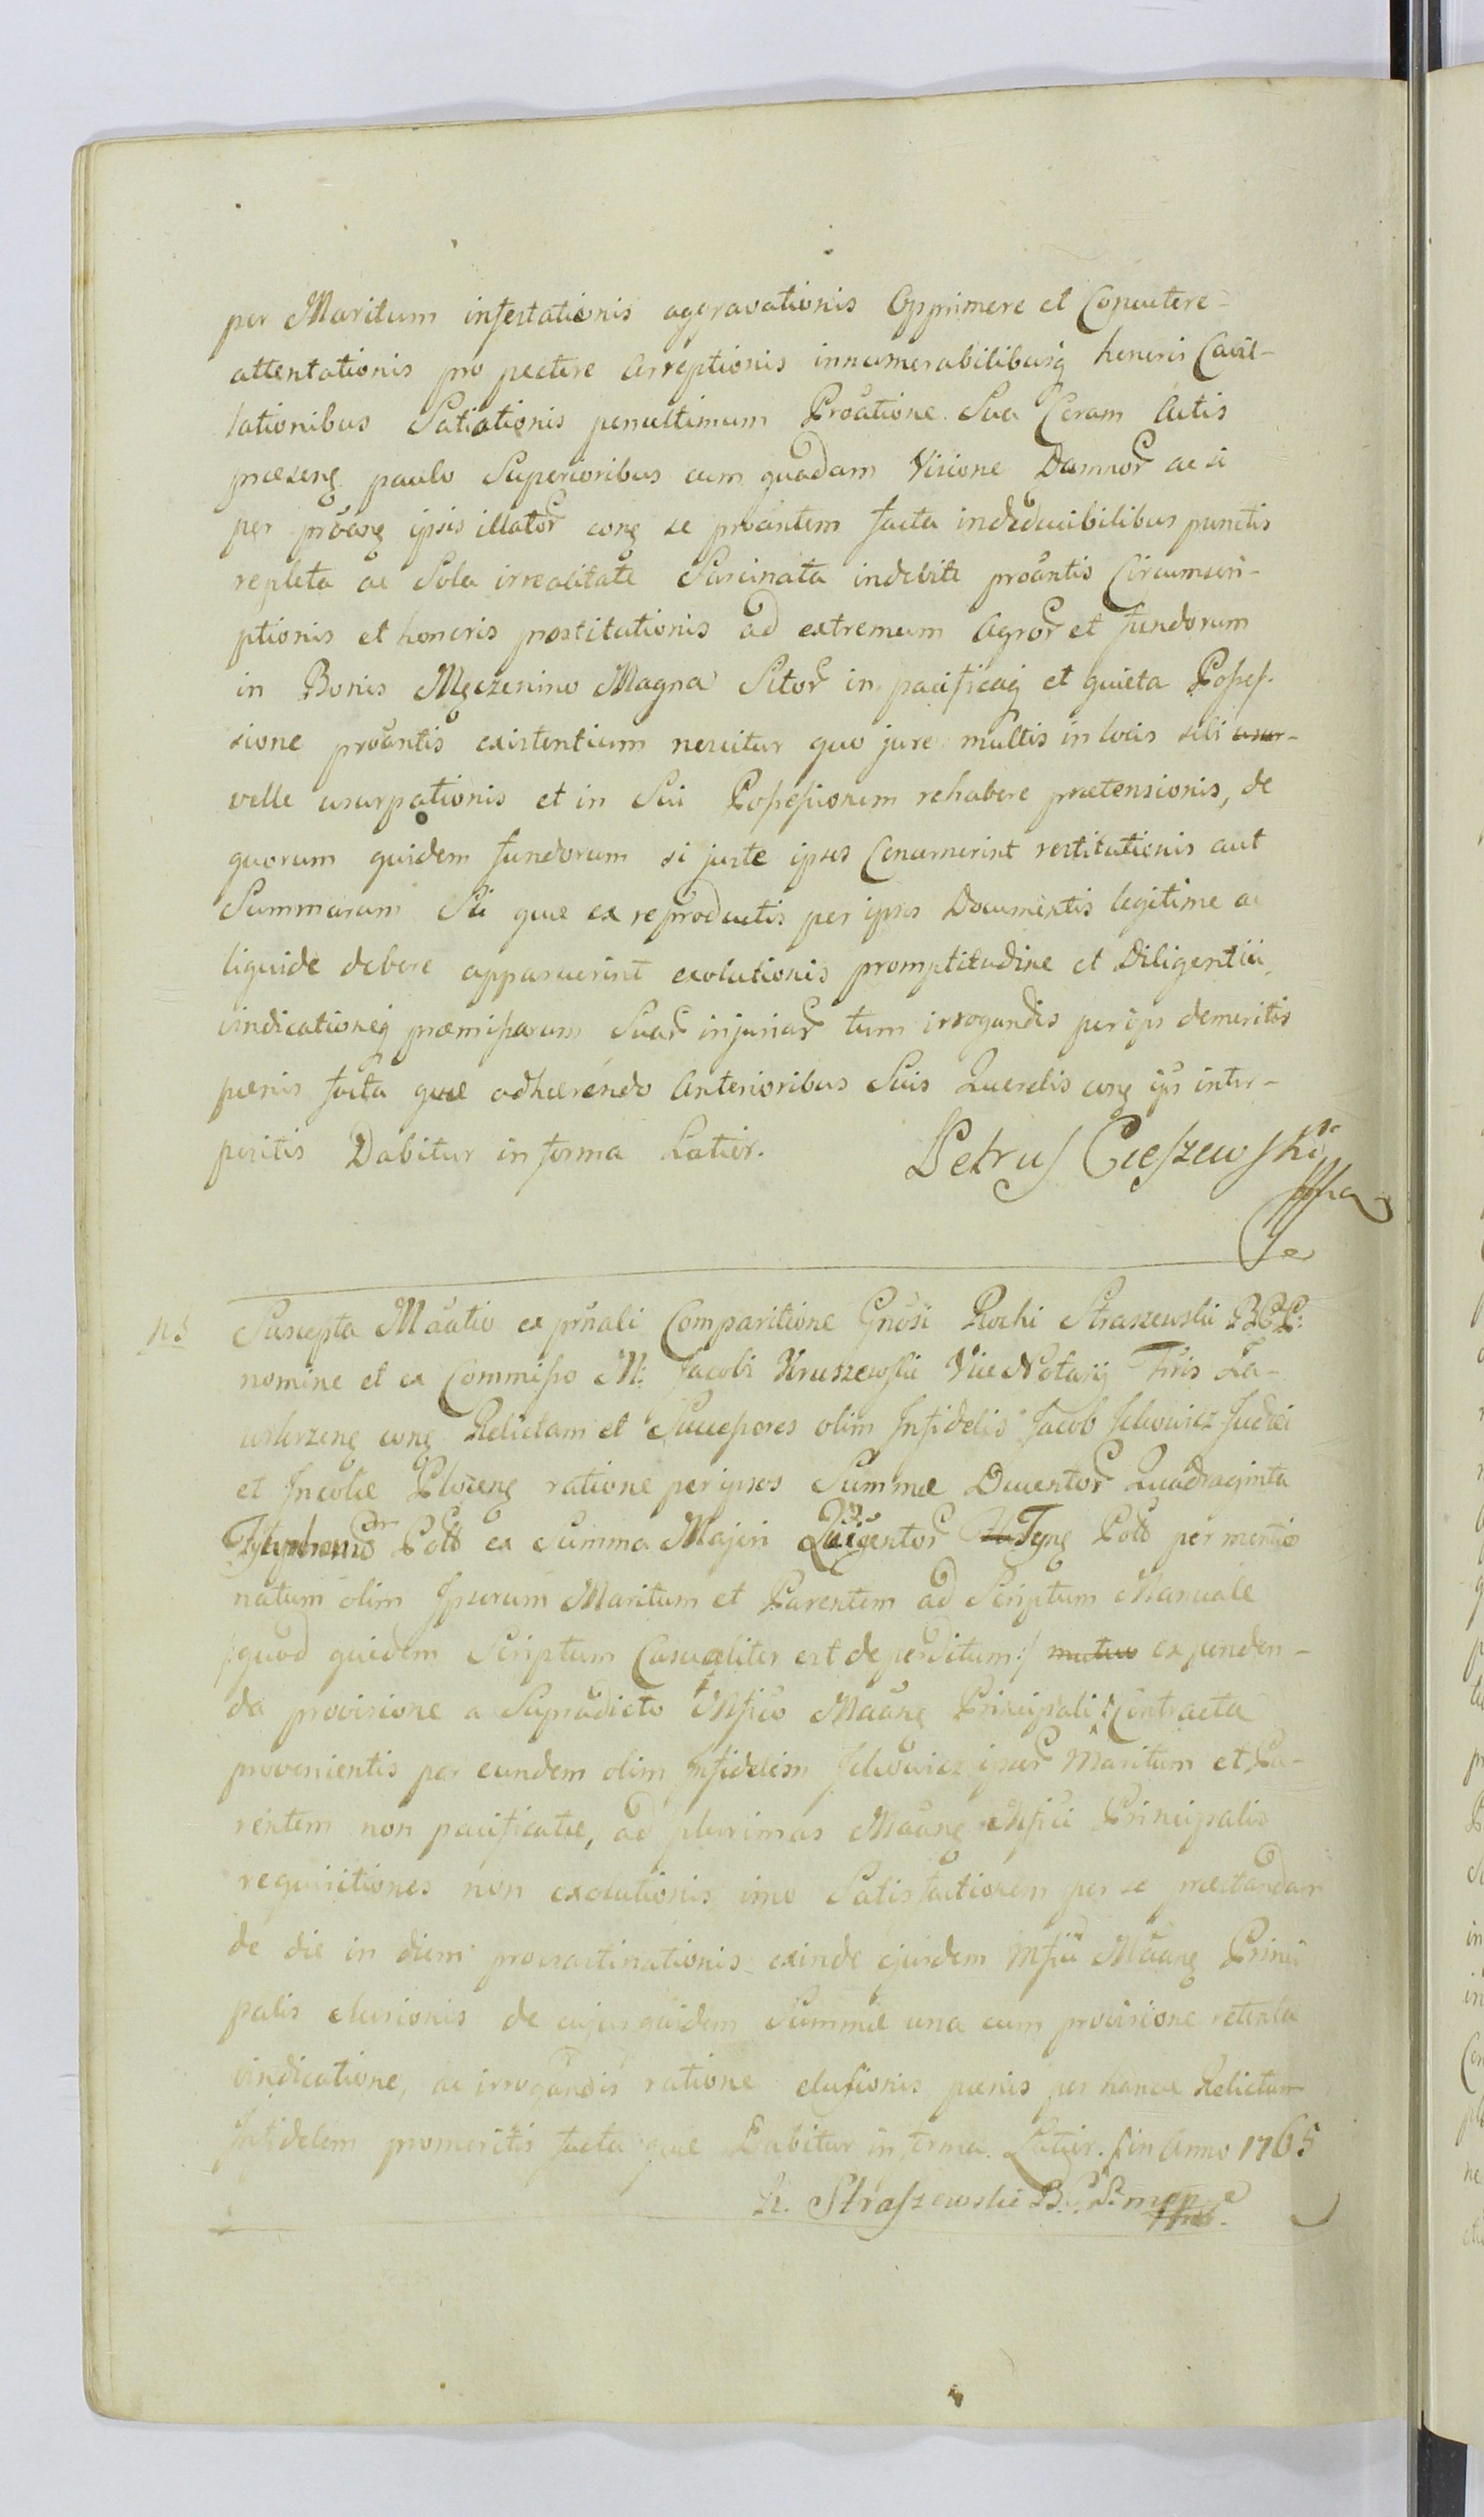 per Maritum infestationis aggravationis Opprimere et Concutere-
attentationis pro pectere Arreptionis innumerabilibusq honeris Cavil-
lationibus Satiationis penultimum Proãtione Sua Coram Actis
præseng paulo Superioribus cum quadam Visione Damnor ac si
per proang ipsis illator cong se proantem facta indeducibilibus punctis
repleta ac Sola irrealitate Sarcinata indebite proantis Circumscri-
ptionis et honoris prostitutionis ad extremum Agror et fundorum
in Bonis Męczenino Magna Sitor in pacificaq et quieta Posses-
sione proantis existentium nescitur quo jure multis in locis sibi usur-
velle usurpationis et in Sui Possessionem rehabere prætensionis, de
quorum quidem fundorum si juste ipsos Concernerint restitutionis aut
Summarum Si quæ ex reproductis per ipsos Documentis legitime ac
liquide debere apparuerint exolutionis promptitudine et Diligentia
vindicationeq præmissarum Suar injuriar tum irrogandis per ips demeritis
pænis facta quæ adhærendo Anterioribus Suis Querelis cong ips inter-
positis Dabitur in forma Latior. Petrus Cieszewski
mpa
Suscepta Mãatio ex prnali Comparitione Gnosi Rochi Straszewski BCP:
nomine et ex Commisso M: Jacobi Kruszewski Vice Notarij Tris Za-
wkrzeng cong Relictam et Successores olim Infidelis Jacob Jelowicz Judæi
et Incolæ Ploceng ratione per ipsos Summæ Ducentor Quadraginta
Pold ex Summa Majori Tyng Pold per mentio
natum olim Ipsorum Maritum et Parentem ad Scriptum Manuale
/:quod quidem Scriptum Casualiter est deperditum:/ mutuo expenden-
da provisione a Supradicto Mfico Maang Principali Contracta
provenientis per eundem olim Infidelem Jelowicz ipsor Maritum et Pa-
rentem non pacificatæ, ad plurimas Maang Mfici Principalis
requisitiones non exolutionis imo Satisfactionem per se præstandam
de die in diem procrastinationis exinde ejusdem Mfici Maang Princi
palis elusionis de cujus quidem Summæ una cum provisione retenta
vindicatione, ac irrogandis ratione elusionis pænis per hance Relictam
Infidelem promeritis facta quæ Dabitur in forma Latior. in Anno 1765
R. Straszewski B.C.P. mpp